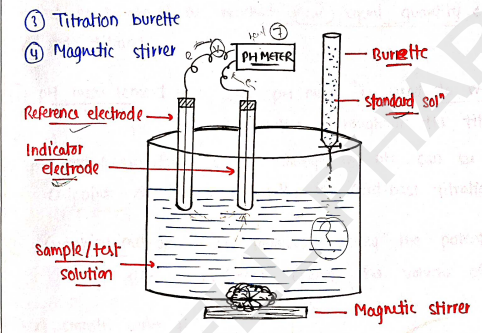 ③ Titration burette
④ Magnetic stirrer
⑦
PH METER
Burette
standard solⁿ
Reference electrode
Indicator
electrode
Sample/test
solution
Magnetic stirrer